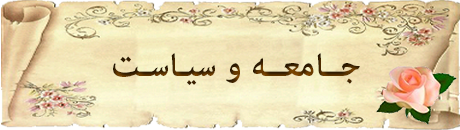 جامعه و سیاست